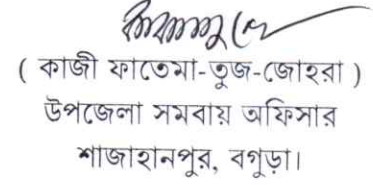 ( কাজী ফাতেমা-তুজ-জোহরা )
উপজেলা সমবায় অফিসার
শাজাহানপুর, বগুড়া।